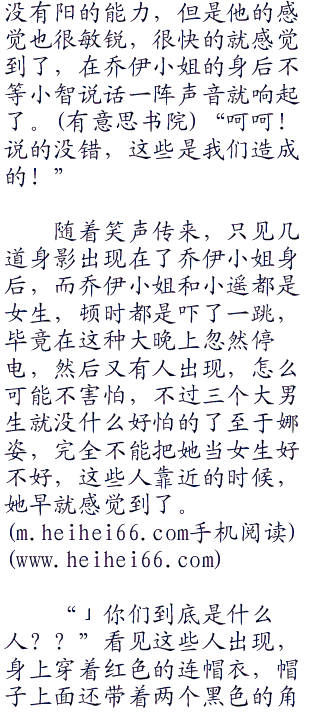 没有阳的能力，但是他的感
觉也很敏锐，很快的就感觉
到了，在乔伊小姐的身后不
等小智说话一阵声音就响起
了。(有意思书院)“呵呵！
说的没错，这些是我们造成
的！”
随着笑声传来，只见几
道身影出现在了乔伊小姐身
后，而乔伊小姐和小遥都是
女生，顿时都是吓了一跳，
毕竟在这种大晚上忽然停
电，然后又有人出现，怎么
可能不害怕，不过三个大男
生就没什么好怕的了至于娜
姿，完全不能把她当女生好
不好，这些人靠近的时候，
她早就感觉到了。
(m.heihei66.com手机阅读)
(www.heihei66.com)
“」你们到底是什么
人？？”看见这些人出现，
身上穿着红色的连帽衣，帽
子上面还带着两个黑色的角